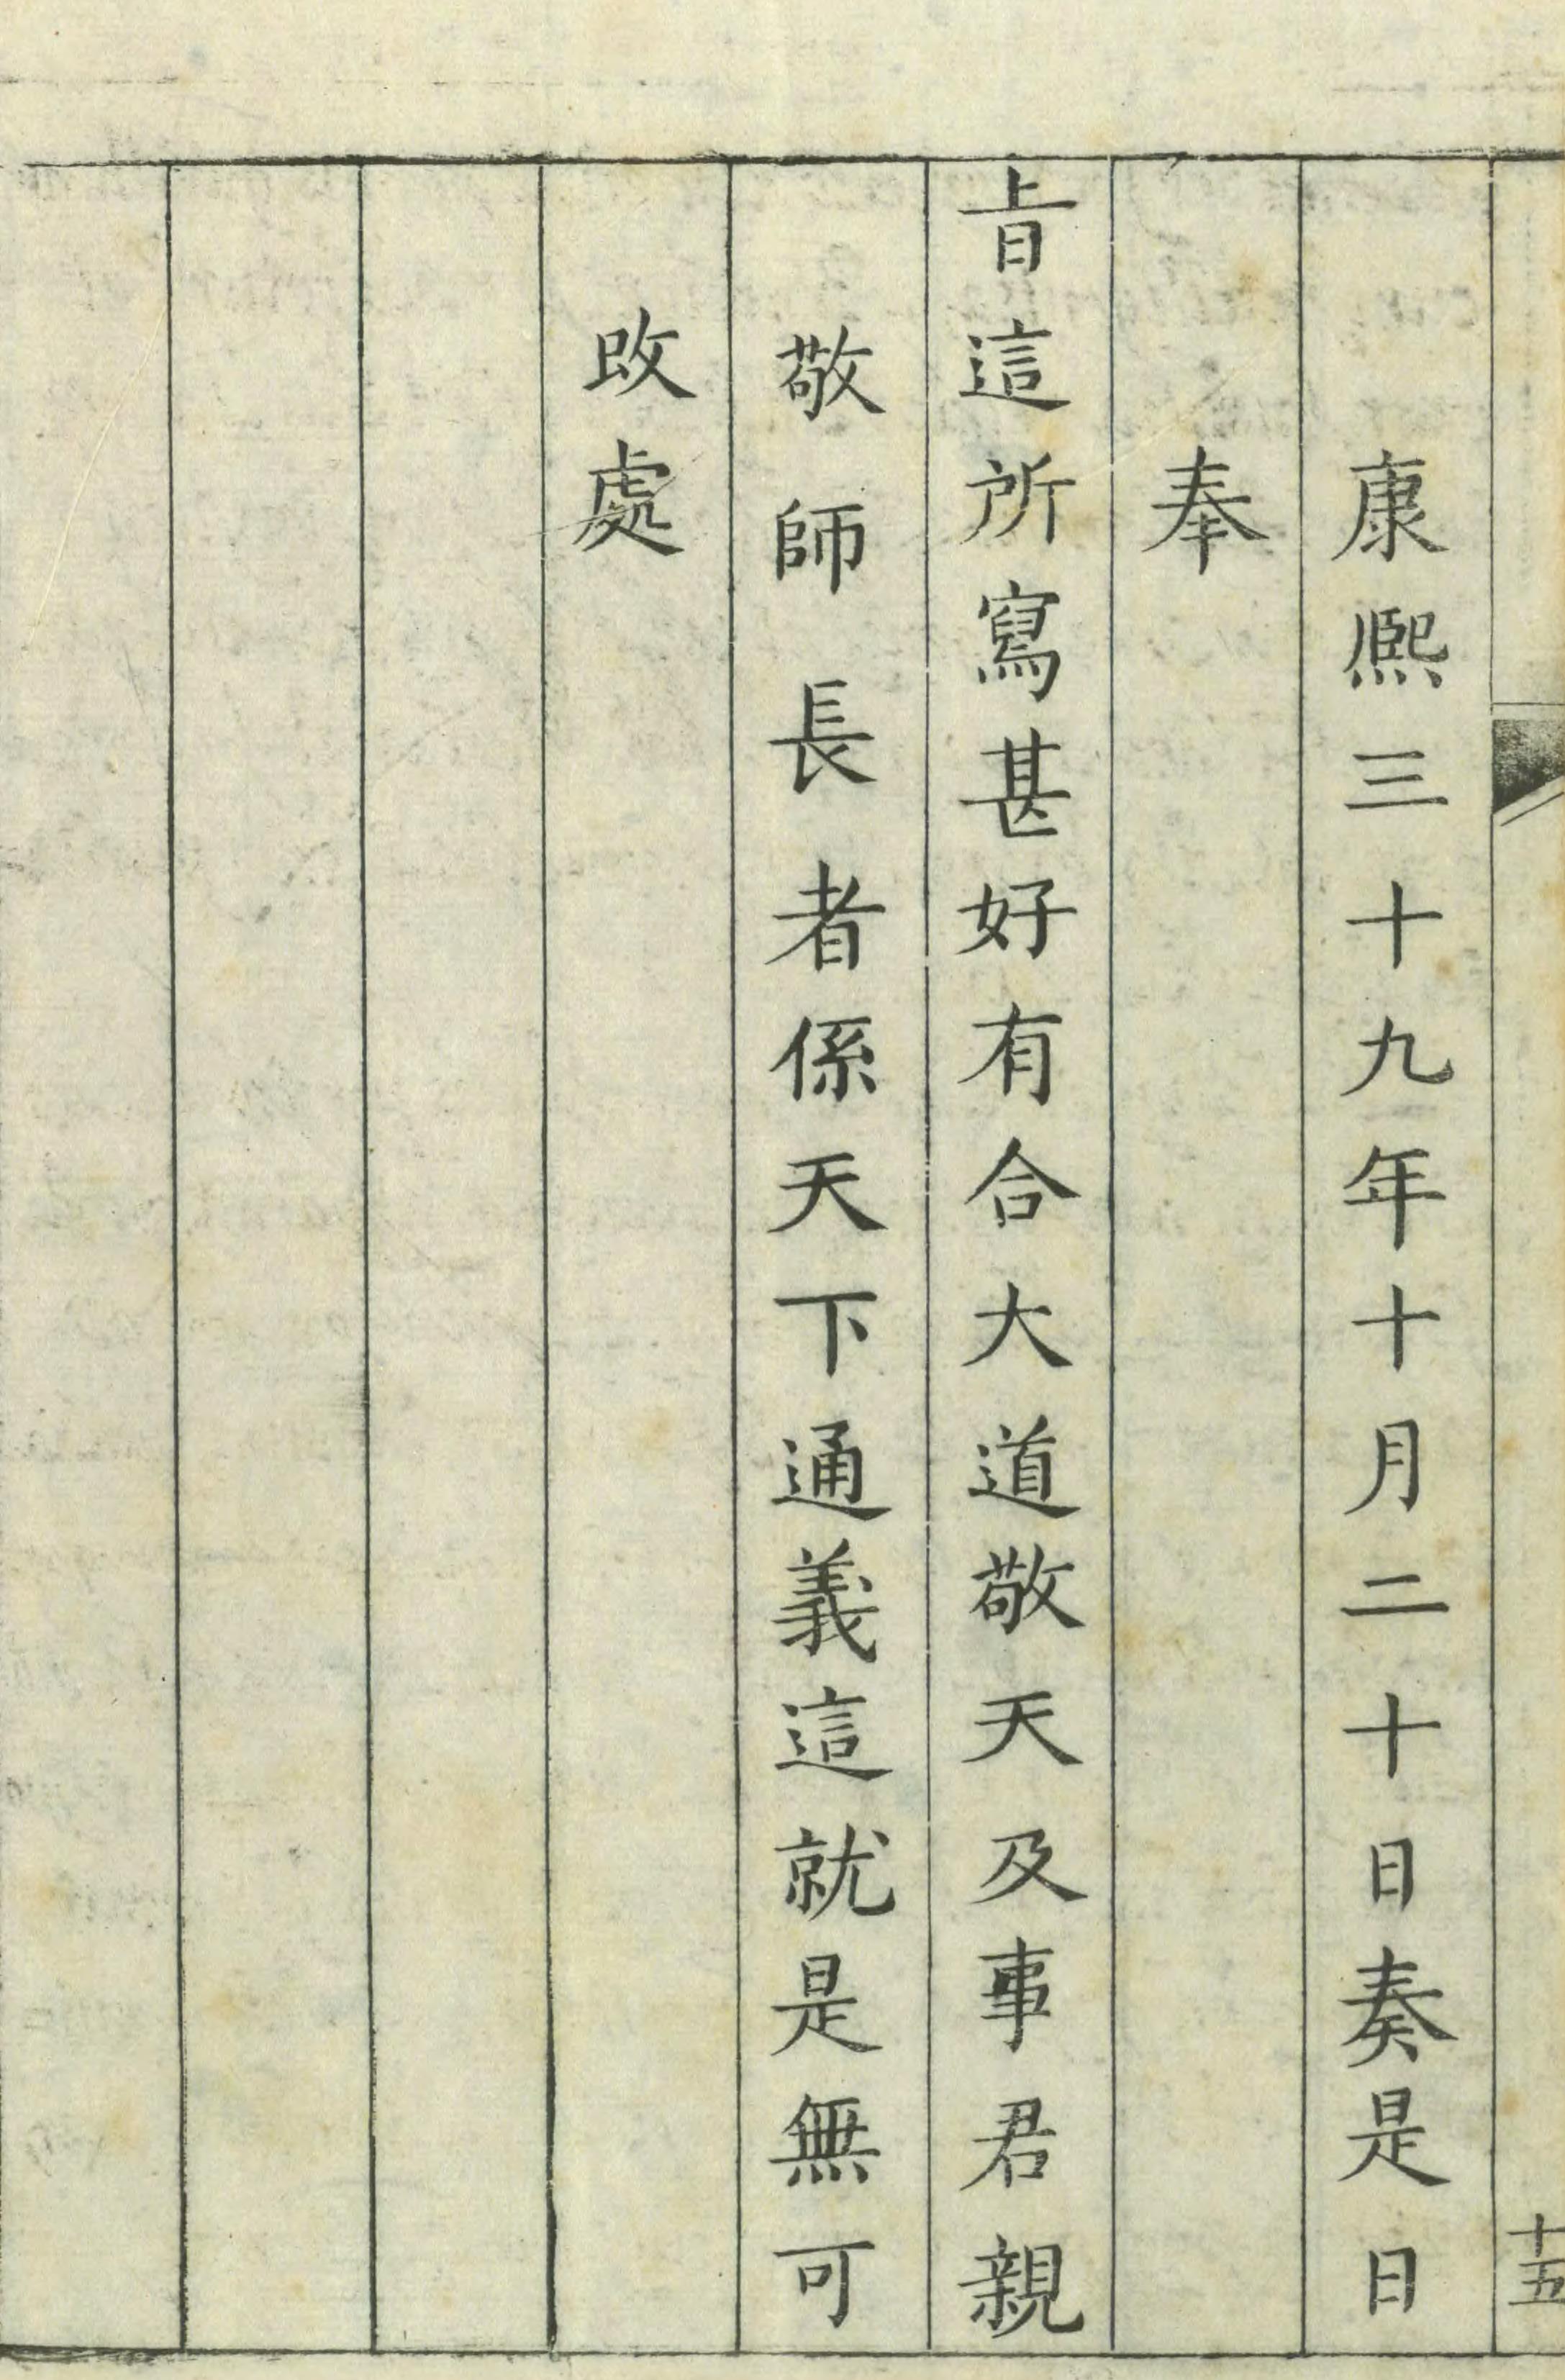 十五
康熙三十九年十月二十日奏是日
奉
旨這所寫甚好有合大道敬天及事君親
敬師長者係天下通義這就是無可
改處